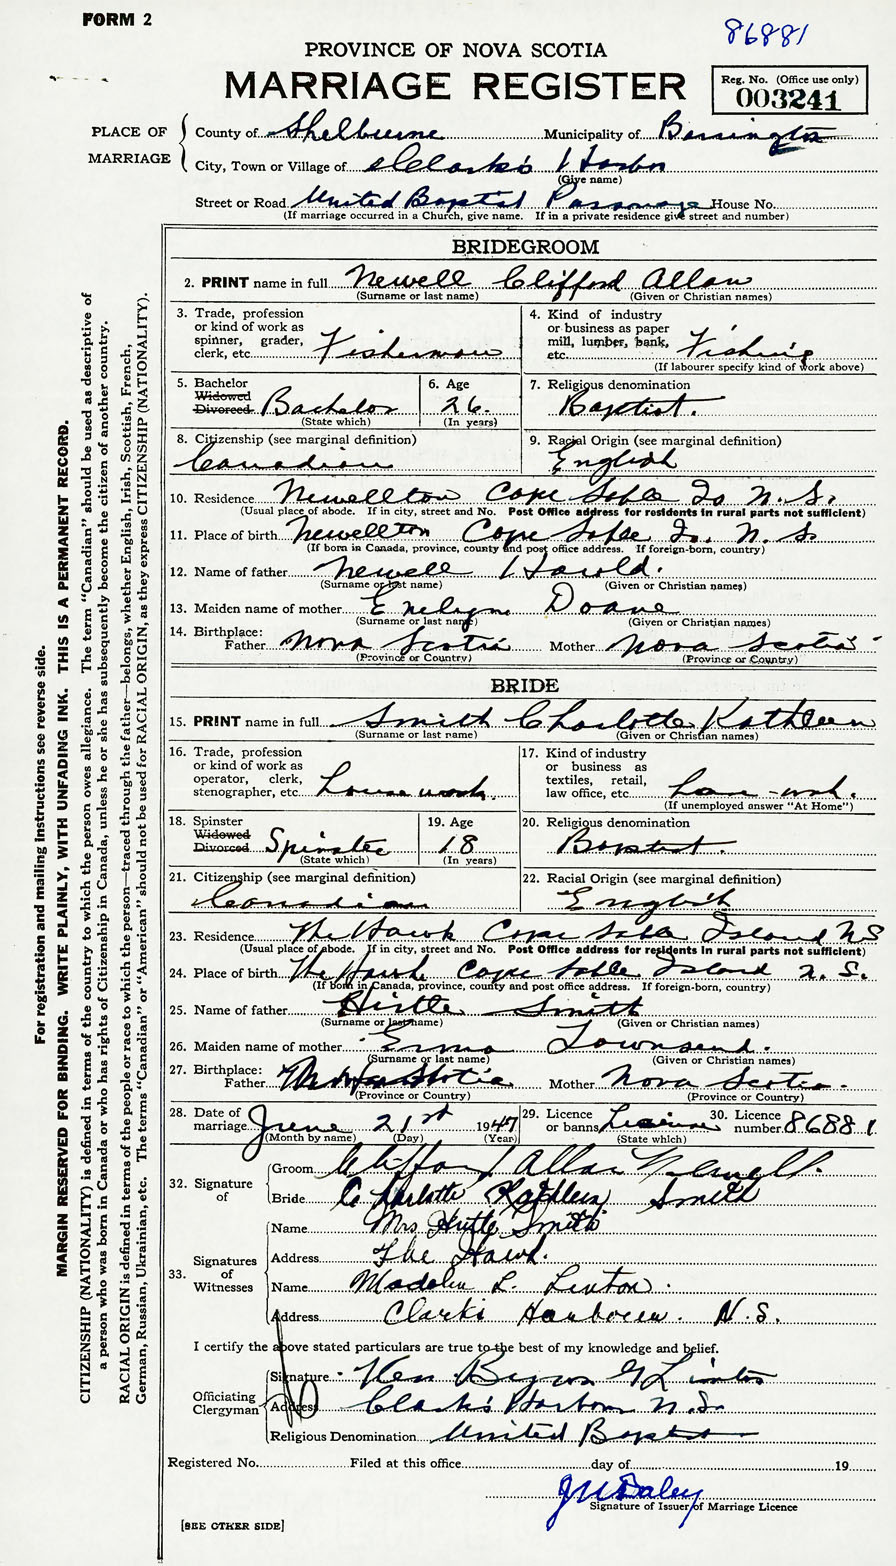 FORM 2
86881
PROVINCE OF NOVA SCOTIA
MARRIAGE REGISTER
Reg. No. (Office use only)
003241
PLACE OF MARRIAGE
County of Shelburne Municipality of Barrington
City, Town or Village of Clark's Harbor
(Give name)
Street or Road United Baptist Parsonage House No.
(If marriage occurred in a Church, give name. If in a private residence give street and number)
BRIDEGROOM
2. PRINT name in full Newell Clifford Allan
(Surname or last name) (Given or Christian names)
3. Trade, profession or kind of work as spinner, grader, clerk, etc. Fisherman
4. Kind of industry or business as paper mill, lumber, bank, etc. Fishing
(If labourer specify kind of work above)
5. Bachelor Widowed Divorced Bachelor
(State which)
6. Age 26.
(In years)
7. Religious denomination Baptist.
8. Citizenship (see marginal definition) Canadian
9. Racial Origin (see marginal definition) English
10. Residence Newellton Cape Sable Is N.S.
(Usual place of abode. If in city, street and No. Post Office address for residents in rural parts not sufficient)
11. Place of birth Newellton Cape Sable Is. N.S
(If born in Canada, province, county and post office address. If foreign-born, country)
12. Name of father Newell Harold.
(Surname or last name) (Given or Christian names)
13. Maiden name of mother Evelyn Doane
(Surname or last name) (Given or Christian names)
14. Birthplace: Father Nova Scotia Mother Nova Scotia
(Province or Country) (Province or Country)
BRIDE
15. PRINT name in full Smith Charlotte Kathleen
(Surname or last name) (Given or Christian names)
16. Trade, profession or kind of work as operator, clerk, stenographer, etc. House work.
17. Kind of industry or business as textiles, retail, law office, etc.
(If unemployed answer "At Home")
18. Spinster Widowed Divorced Spinster
(State which)
19. Age 18
(In years)
20. Religious denomination Baptist.
21. Citizenship (see marginal definition) Canadian
22. Racial Origin (see marginal definition) English
23. Residence The Hawk Cape Sable Island NS
(Usual place of abode. If in city, street and No. Post Office address for residents in rural parts not sufficient)
24. Place of birth The Hawk Cape Sable Island N.S.
(If born in Canada, province, county and post office address. If foreign-born, country)
25. Name of father Hirtle Smith
(Surname or last name) (Given or Christian names)
26. Maiden name of mother Erma Townsend.
(Surname or last name) (Given or Christian names)
27. Birthplace: Father Nova Scotia Mother Nova Scotia.
(Province or Country) (Province or Country)
28. Date of marriage June 21st 1947
(Month by name) (Day) (Year)
29. Licence or banns License
(State which)
30. Licence number 86881
32. Signature of
Groom Clifford Allan Newell.
Bride Charlotte Kathleen Smith
33. Signatures of Witnesses
Name Mrs Hirtle Smith
Address The Hawk.
Name Madelin L. Linton.
Address Clark's Harbour. N.S.
I certify the above stated particulars are true to the best of my knowledge and belief.
Officiating Clergyman
Signature Byron Linton
Address Clark's Harbour N.S.
Religious Denomination United Baptist
Registered No. Filed at this office day of 19
Daley
Signature of Issuer of Marriage Licence
[SEE OTHER SIDE]
For registration and mailing instructions see reverse side.
MARGIN RESERVED FOR BINDING. WRITE PLAINLY, WITH UNFADING INK. THIS IS A PERMANENT RECORD.
CITIZENSHIP (NATIONALITY) is defined in terms of the country to which the person owes allegiance. The term "Canadian" should be used as descriptive of
a person who was born in Canada or who has rights of Citizenship in Canada, unless he or she has subsequently become the citizen of another country.
RACIAL ORIGIN is defined in terms of the people or race to which the person—traced through the father—belongs, whether English, Irish, Scottish, French,
German, Russian, Ukrainian, etc. The terms "Canadian" or "American" should not be used for RACIAL ORIGIN, as they express CITIZENSHIP (NATIONALITY).